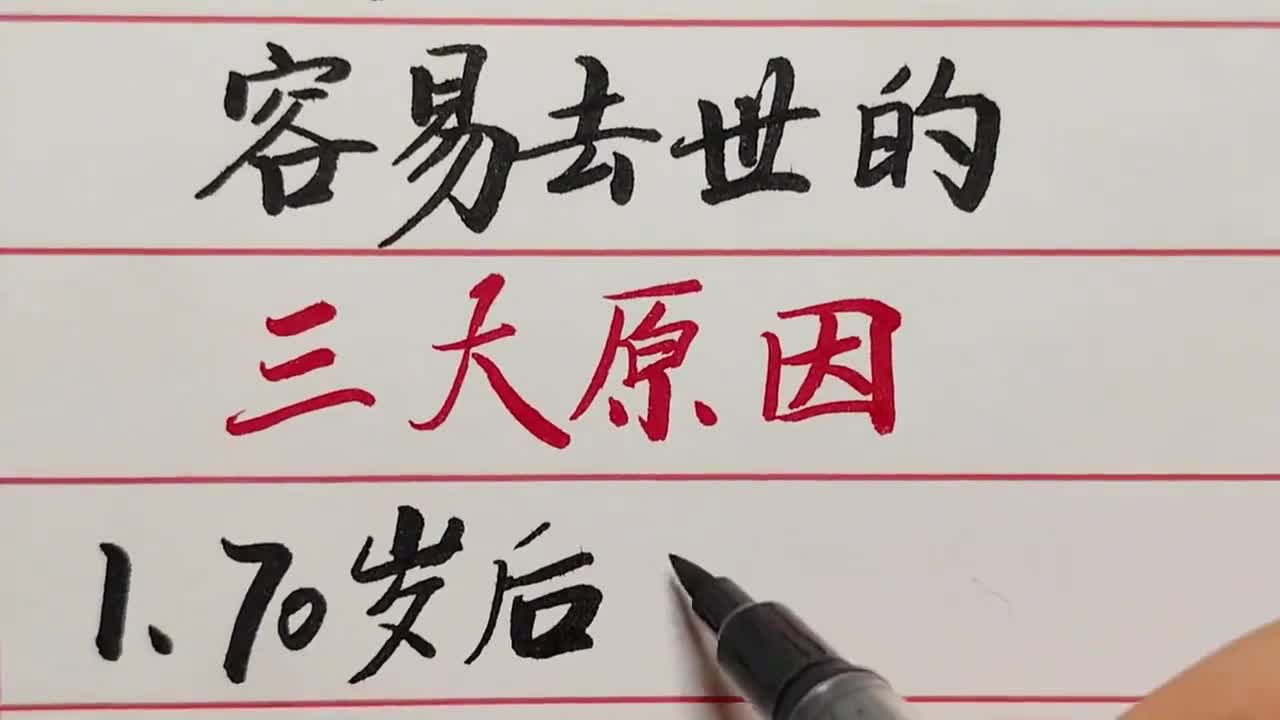 容易去世的
三大原因
1.70岁后